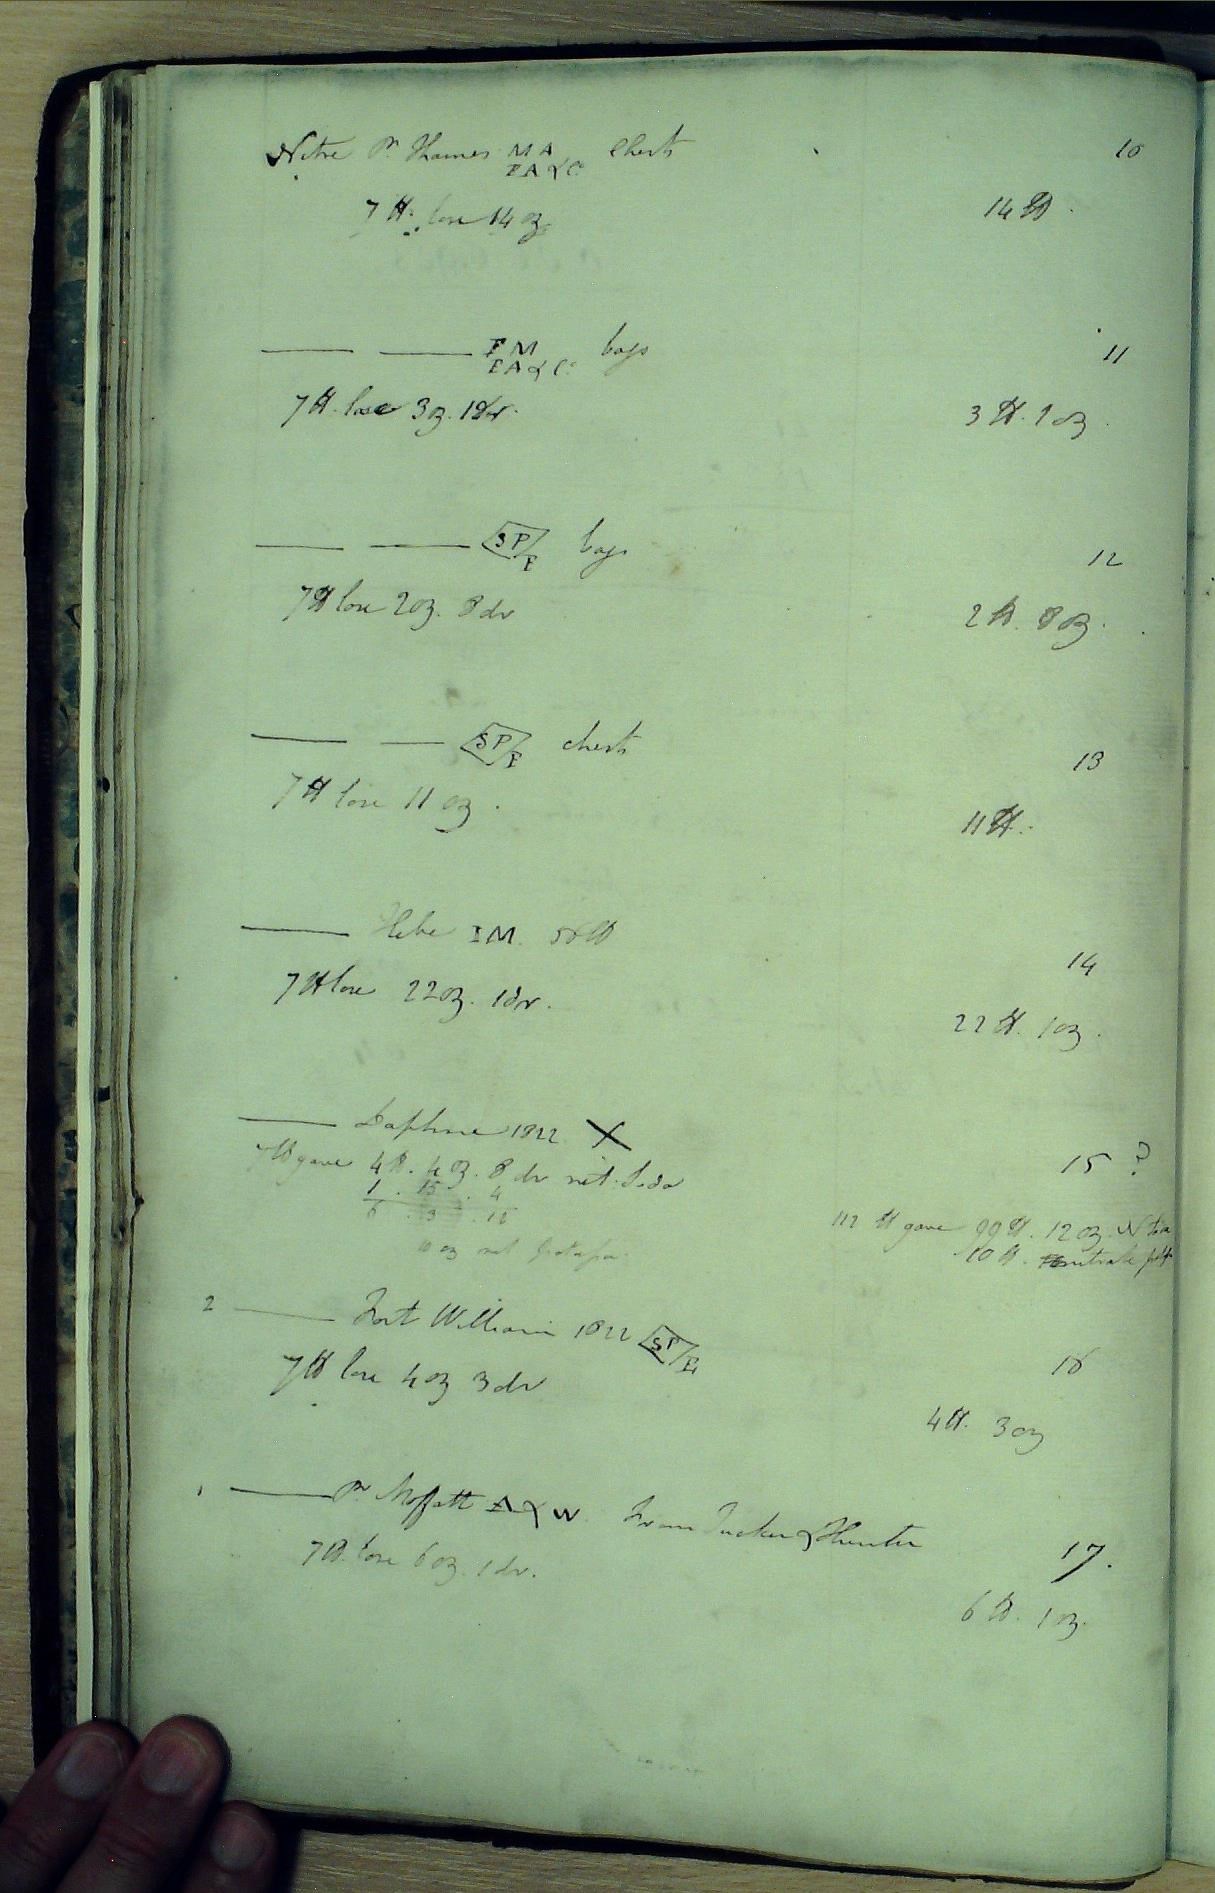 Nitre Pr. Thames MA Chests 10
EA & Co
7 ℔. lose 14 oz 14 ℔.
—— —— FM bags 11
EA & Co
7 ℔. lose 3 oz. 1 dr. 3 ℔. 1 oz.
—— —— SP bags 12
E
7 ℔ lose 2 oz. 8 dr 2 ℔. 8 oz.
—— —— SP chests 13
E
7 ℔ lose 11 oz. 11 ℔.
—— Hebe IM 14
7 ℔ lose 22 oz. 1 dr. 22 ℔. 1 oz.
—— Daphne 1822 X
7 ℔ gave 4 ℔. 4 oz. 8 dr nit. Soda 15 ?
1 . 15 . 4
6 . 3 . 12
10 oz nit Potassa
112 ℔ gave 99 ℔. 12 oz. Nitre
10 ℔. nitrate
2 —— Fort William 1822 SP
E 16
7 ℔ lose 4 oz 3 dr
4 ℔. 3 oz
1 —— Pr. Moffatt A & W. From Tucker & Hunter 17.
7 ℔. lose 6 oz. 1 dr.
6 ℔. 1 oz.